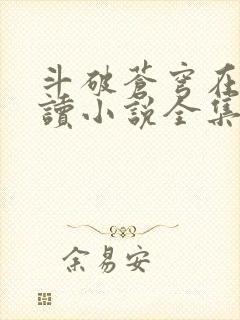 斗破蒼穹在
讀小說全集
余易安